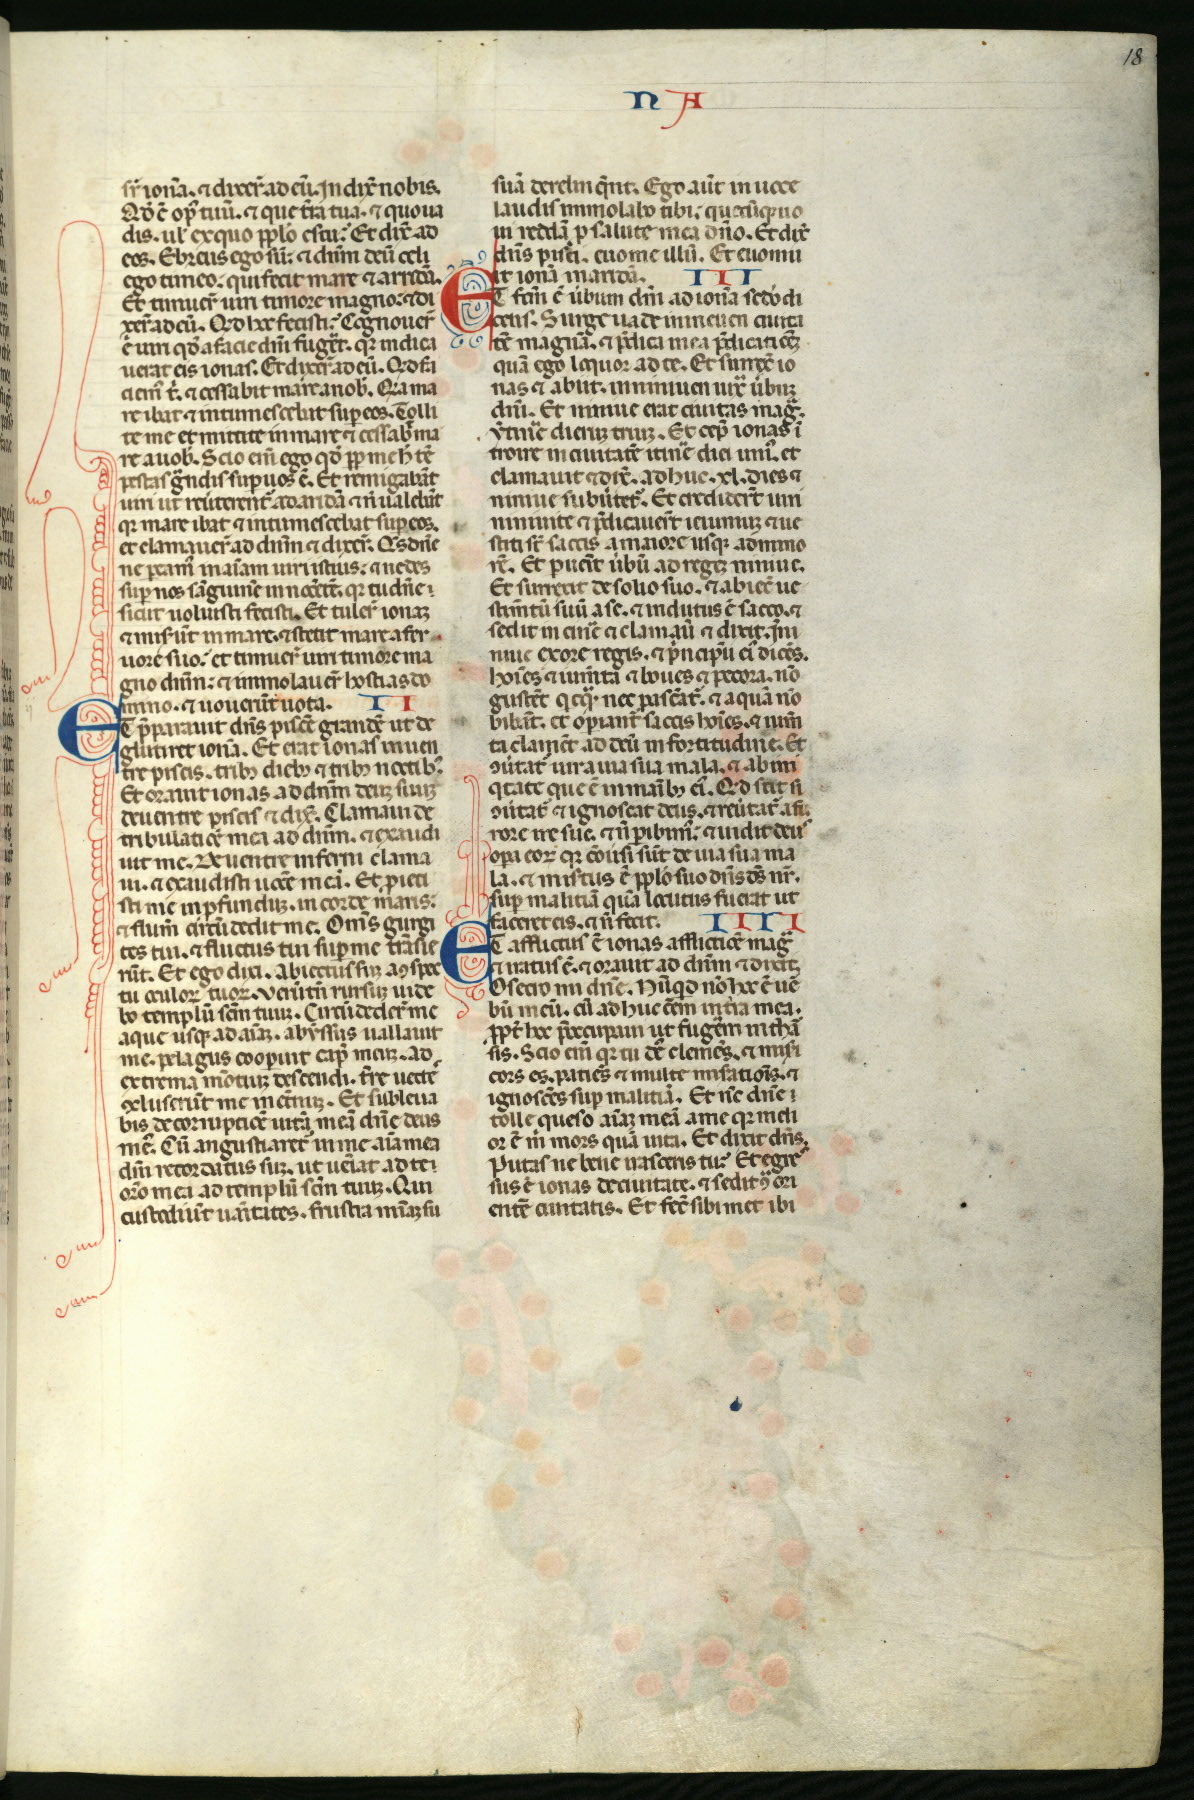 18
NA
sr̄ ionā. ⁊ dixer̄ ad eū. Indic̄ nobis.
Qd̄ ē op̄ tuū. ⁊ que t̄ra tua. ⁊ quo ua
dis. ul̄ ex quo pp̄lo es tu? Et dix̄ ad
eos. Ebreus ego sū: ⁊ dn̄m deū celi
ego timeo: qui fecit mare ⁊ aridā.
Et timuer̄ uiri timore magno: ⁊ di
xer̄ ad eū. Qd̄ hoc fecisti? Cognouer̄
ē uiri qd̄ a facie dn̄i fuger̄t. qr̄ indica
uerat eis ionas. Et dixer̄ ad eū. Qd̄ fa
ciem̄ t̄. ⁊ cessabit mare a nob̄. Qr̄ ma
re ibat ⁊ intumescebat sup̄ eos. Tolli
te me et mittite in mare ⁊ cessab̄ ma
re a uob̄. Scio eni ego qd̄ pp̄ me h̄ tē
pestas ḡndis sup̄ uos ē. Et remigabāt
uiri ut reūterent̄ ad aridā ⁊ n̄ ualebāt
qr̄ mare ibat ⁊ intumescebat sup̄ eos.
et clamauer̄ ad dn̄m ⁊ dixer̄. Qs̄ dn̄e
ne peam̄ in aīam uiri istius: ⁊ ne des
sup̄ nos sāguinē innocētē. qr̄ tu dn̄e:
sicut uoluisti fecisti. Et tuler̄ ionaꝫ
⁊ miser̄ūt in mare. ⁊ stetit mare a fer
uore suo: et timuer̄ uiri timore ma
gno dn̄m: ⁊ immolauer̄ hostias do
mino. ⁊ uouerūt uota. II
ET p̄parauit dn̄s piscē grandē ut de
glutiret ionā. Et erat ionas in uen
tre piscis. tribꝫ diebꝫ ⁊ tribꝫ noctibꝫ.
Et orauit ionas ad dn̄m deuꝫ suuꝫ
de uentre piscis ⁊ dix̄. Clamaui de
tribulatiōe mea ad dn̄m. ⁊ exaudi
uit me. De uentre inferni clama
ui. ⁊ exaudisti uocē meā. Et p̄ieci
sti me in p̄funduꝫ. in corde maris:
⁊ flum̄ circūdedit me. Om̄s gurgi
tes tui. ⁊ fluctus tui sup̄ me trāsie
rūt. Et ego dixi. Abiectus suꝫ a ꝯspec
tu oculoꝝ tuoꝝ. Verūtn̄ rursuꝫ uide
bo templū scm̄ tuuꝫ. Circūdeder̄ me
aque usqꝫ ad aīaꝫ. abyssus uallauit
me. pelagus cooperuit cap̄ meuꝫ. ad
extrema mōtiuꝫ descendi. t̄re uectē
ꝯcluserūt me in et̄nuꝫ. Et subleua
bis de corruptiōe uitā meā dn̄e deus
mē. Cū angustiaret̄ in me aīa mea
dn̄i recordatus suꝫ. ut ueniat ad te:
or̄o mea ad templū scm̄ tuuꝫ. Qui
custodiūt uanitates. frustra mīaꝫ su
suā derelinq̄nt. Ego aūt in uoce
laudis immolabo tibi: quecūqꝫ uo
ui reddā p̄ salute mea dn̄o. Et dix̄
dn̄s pisci. euome illū. Et euomu
it ionā in aridā. III
ET fc̄m ē ūbum dn̄i ad ionā sec̄do di
cens. Surge uade in niniuen ciuita
tē magnā. ⁊ p̄dica in ea p̄dicatiōeꝫ
quā ego loquor ad te. Et surrex̄ io
nas ⁊ abiit. in niniuen iux̄ ūbuꝫ
dn̄i. Et niniue erat ciuitas maḡ.
⁊ itinē dieruꝫ triuꝫ. Et cep̄ ionas ī
troire in ciuitatē itinē diei uni. et
clamauit ⁊ dix̄. adhuc. xl. dies ⁊
niniue subūtet̄. Et crediderūt uiri
niniuite ⁊ p̄dicauer̄t ieiuniuꝫ ⁊ ue
stiti st̄ saccis a maiore usqꝫ ad mino
rē. Et p̄uenit ūbū ad regeꝫ niniue.
Et surrexit de solio suo. ⁊ abiec̄ ue
stimtū suū a se. ⁊ indutus ē sacco. ⁊
sedit in cinē ⁊ clamau̅ ⁊ dixit. In ni
niue ex ore regis. ⁊ p̄ncipū ei dicēs.
hoīes ⁊ iumta ⁊ boues ⁊ pecora. nō
gustēt qcqꝫ. nec pascāt̄. ⁊ aquā nō
bibāt. et opiant̄ saccis hoīes. ⁊ ium
ta clamēt ad deū in fortitudine. Et
ꝯūtat̄ uir a uia sua mala. ⁊ ab ini
qtate que ē in manibꝫ ei. Qd̄ scit si
ꝯūtat̄ ⁊ ignoscat deus. ⁊ reūtat̄ a fu
rore ire sue. ⁊ n̄ p̄ibim̄: ⁊ uidit deus
opa eoꝝ qr̄ cōūsi sūt de uia sua ma
la. ⁊ misertus ē pp̄lo suo dn̄s ds̄ nr̄.
sup̄ malitiā quā locutus fuerat ut
faceret eis. ⁊ n̄ fecit. IIII
ET afflictus ē ionas afflictiōe maḡ
⁊ iratus ē. ⁊ orauit ad dn̄m ⁊ dixit.
Obsecro mi dn̄e. Nūqd nō hoc ē ūe
bū meū. cū adhuc eēm in t̄ra mea.
pp̄t hoc p̄occupaui ut fugēm in tha
sis. Scio eni qr̄ tu de clemēs. ⁊ misi
cors es. patiēs ⁊ multe misatiōis. ⁊
ignoscēs sup̄ malitiā. Et nc̄ dn̄e:
tolle queso aīaꝫ meā a me qr̄ meli
or ē m̄ mors quā uita. Et dixit dn̄s.
Putas ne bene irasceris tu? Et egres
sus ē ionas de ciuitate. ⁊ sedit ꝯ ori
entē ciuitatis. Et fec̄ sibimet ibi